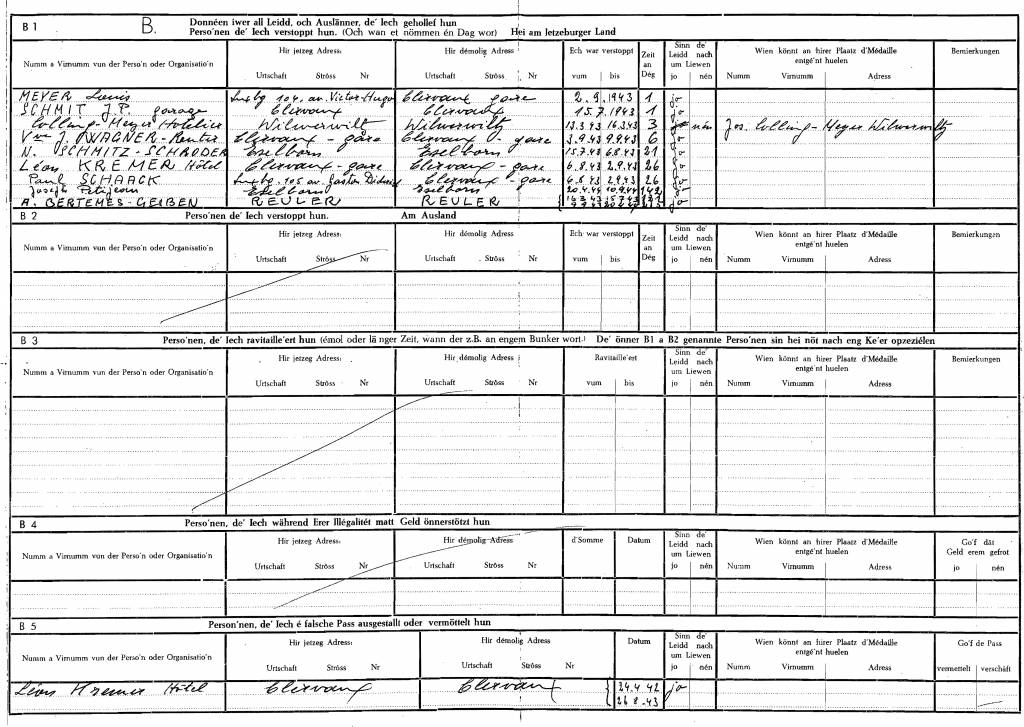 B 1 B. Donnéen iwer all Leidd, och Auslänner, de' Iech gehollef hun
Perso'nen de' Iech verstoppt hun. (Och wan et nömmen én Dag wor) Hei am letzeburger Land
Numm a Virnumm vun der Perso'n oder Organisatio'n
Hir jetzeg Adress:
Urtschaft Ströss Nr
Hir démolig Adress
Urtschaft Ströss Nr
Ech war verstoppt
vum bis
Zeit an Dég
Sinn de' Leidd nach um Liewen
jo nén
Wien könnt an hirer Plaatz d'Médaille entgé'nt huelen
Numm Virnumm Adress
Bemierkungen
MEYER Louis Luxbg 104, av. Victor-Hugo Clervaux gare 2.9.1943 1 jo
SCHMIT J.P. garage Clervaux Clervaux 15.7.1943 1 jo
Colling-Meyer Hotelier Wilwerwiltz Wilwerwiltz 13.3.43 16.3.43 3 nén Jos. Colling-Meyer Wilwerwiltz
Vve J. WAGNER-Reuter Clervaux - gare Clervaux - gare 3.9.43 9.9.43 6 jo
N. SCHMITZ-SCHRODER Eselborn Eselborn 15.7.43 6.8.43 21 jo
Léon KREMER Hôtel Clervaux - gare Clervaux - gare 6.8.43 2.9.43 26 jo
Paul SCHAACK Luxbg. 105 av. Gaston Diderich Clervaux - gare 6.8.43 2.9.43 26 jo
Joseph Eselborn Eselborn 20.4.44 10.9.44 142 jo
A. BERTEMES-GEIBEN REULER REULER 16.3.43 15.7.43 121 jo
B 2 Perso'nen de' Iech verstoppt hun. Am Ausland
Numm a Virnumm vun der Perso'n oder Organisatio'n
Hir jetzeg Adress:
Urtschaft Ströss Nr
Hir démolig Adress
Urtschaft Ströss Nr
Ech war verstoppt
vum bis
Zeit an Dég
Sinn de' Leidd nach um Liewen
jo nén
Wien könnt an hirer Plaatz d'Médaille entgé'nt huelen
Numm Virnumm Adress
Bemierkungen
B 3 Perso'nen, de' Iech ravitaille'ert hun (émol oder länger Zeit, wann der z.B. an engem Bunker wort.) De' önner B1 a B2 genannte Perso'nen sin hei nöt nach eng Ke'er opzeziélen
Numm a Virnumm vun der Perso'n oder Organisatio'n
Hir jetzeg Adress:
Urtschaft Ströss Nr
Hir démolig Adress
Urtschaft Ströss Nr
Ravitaille'ert
vum bis
Sinn de' Leidd nach um Liewen
jo nén
Wien könnt an hirer Plaatz d'Médaille entgé'nt huelen
Numm Virnumm Adress
Bemierkungen
B 4 Perso'nen, de' Iech während Erer Illégalitét matt Geld önnerstötzt hun
Numm a Virnumm vun der Perso'n oder Organisatio'n
Hir jetzeg Adress:
Urtschaft Ströss Nr
Hir démolig Adress
Urtschaft Ströss Nr
d'Somme Datum
Sinn de' Leidd nach um Liewen
jo nén
Wien könnt an hirer Plaatz d'Médaille entgé'nt huelen
Numm Virnumm Adress
Go'f dät Geld erem gefrot
jo nén
B 5 Person'nen, de' Iech é falsche Pass ausgestallt oder vermöttelt hun
Numm a Virnumm vun der Perso'n oder Organisatio'n
Hir jetzeg Adress:
Urtschaft Ströss Nr
Hir démolig Adress
Urtschaft Ströss Nr
Datum
Sinn de' Leidd nach um Liewen
jo nén
Wien könnt an hirer Plaatz d'Médaille entgé'nt huelen
Numm Virnumm Adress
Go'f de Pass
vermettelt verschäft
Léon Kremer Hôtel Clervaux Clervaux 24.4.42 jo
26.8.43